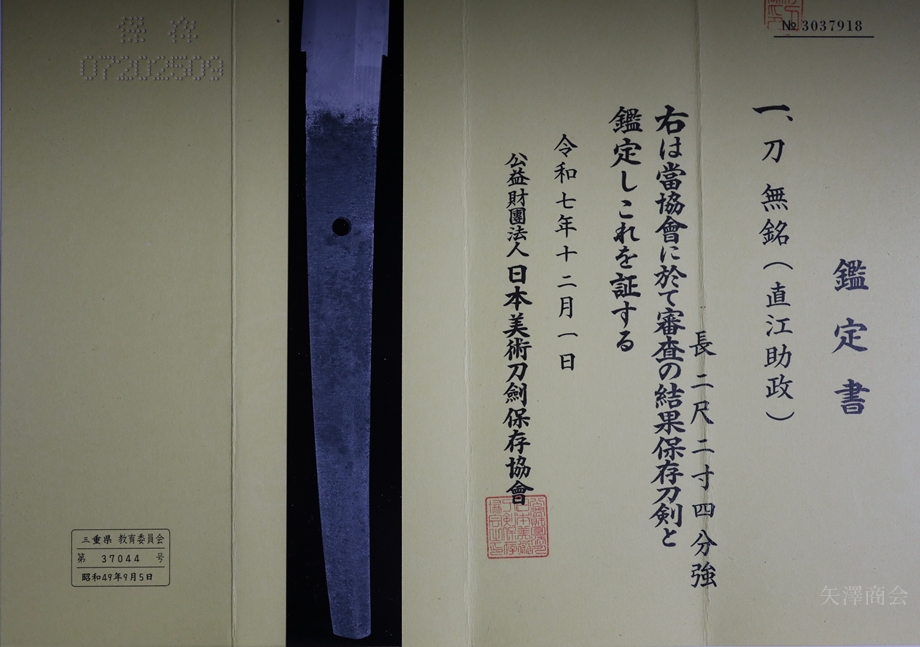 №3037918
鑑定書
一、刀 無銘(直江助政)
長二尺二寸四分強
右は當協會に於て審査の結果保存刀剣と
鑑定しこれを証する
令和七年十二月一日
公益財團法人日本美術刀劍保存協會
保存
07202509
三重県 教育委員会
第 37044 号
昭和49年9月5日
矢澤商会